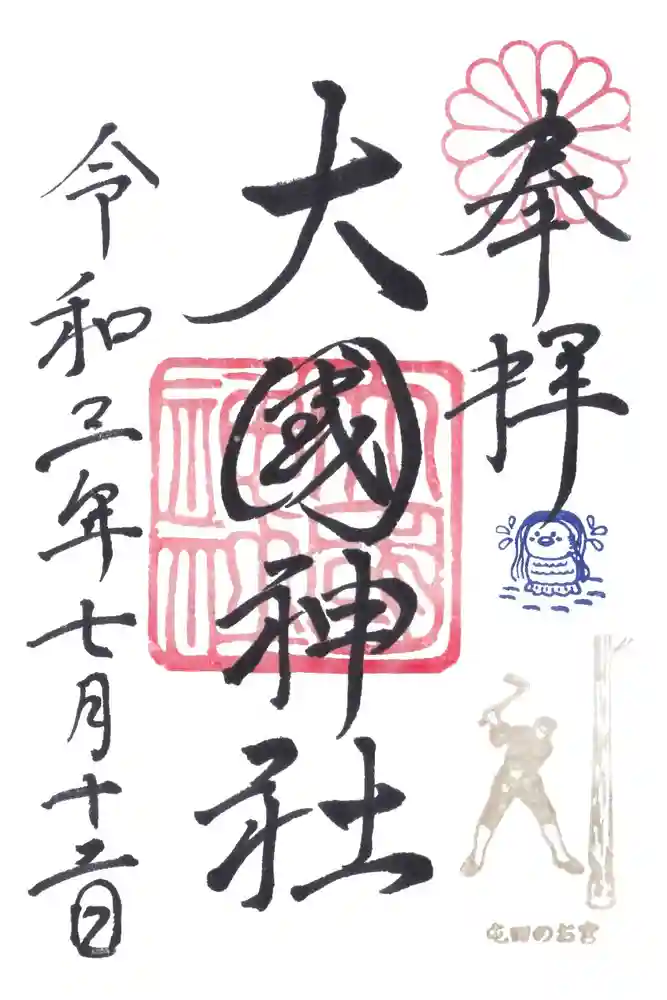 奉拝
屯田のお宮
大國神社
令和三年七月十二日